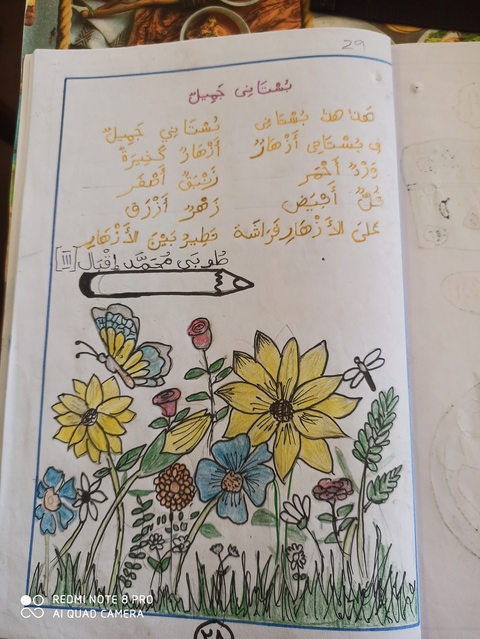 29
بُسْتَانِي جَمِيلٌ
هَذَا هَذَا بُسْتَانِي بُسْتَانِي جَمِيلٌ
فِي بُسْتَانِي أَزْهَارٌ أَزْهَارٌ كَثِيرَةٌ
وَرْدٌ أَحْمَر زَنْبَقٌ أَصْفَر
فُلٌّ أَبْيَض زَهْرٌ أَزْرَق
عَلَىٰ الأَزْهَارِ فَرَاشَة تَطِيرُ بَيْنَ الأَزْهَارِ
طُوبَى مُحَمَّد إِقْبَال [III]
REDMI NOTE 8 PRO
AI QUAD CAMERA